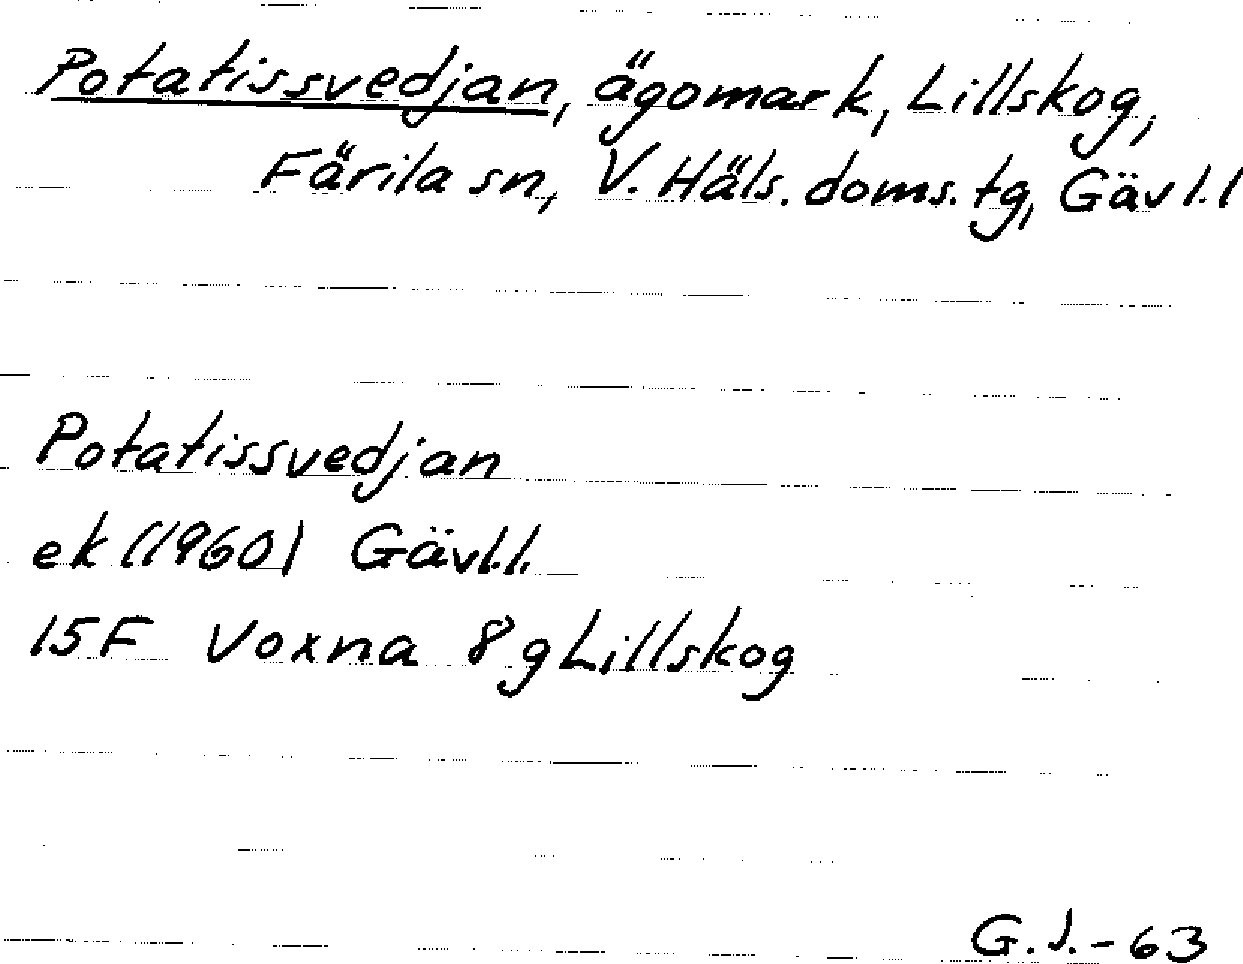 Potatissvedjan, ägomark, Lillskog,
Färila sn, V. Häls. doms. tg, Gävl. l
Potatissvedjan
ek (1960) Gävl.l.
15F Voxna 8g Lillskog
G.J.-63